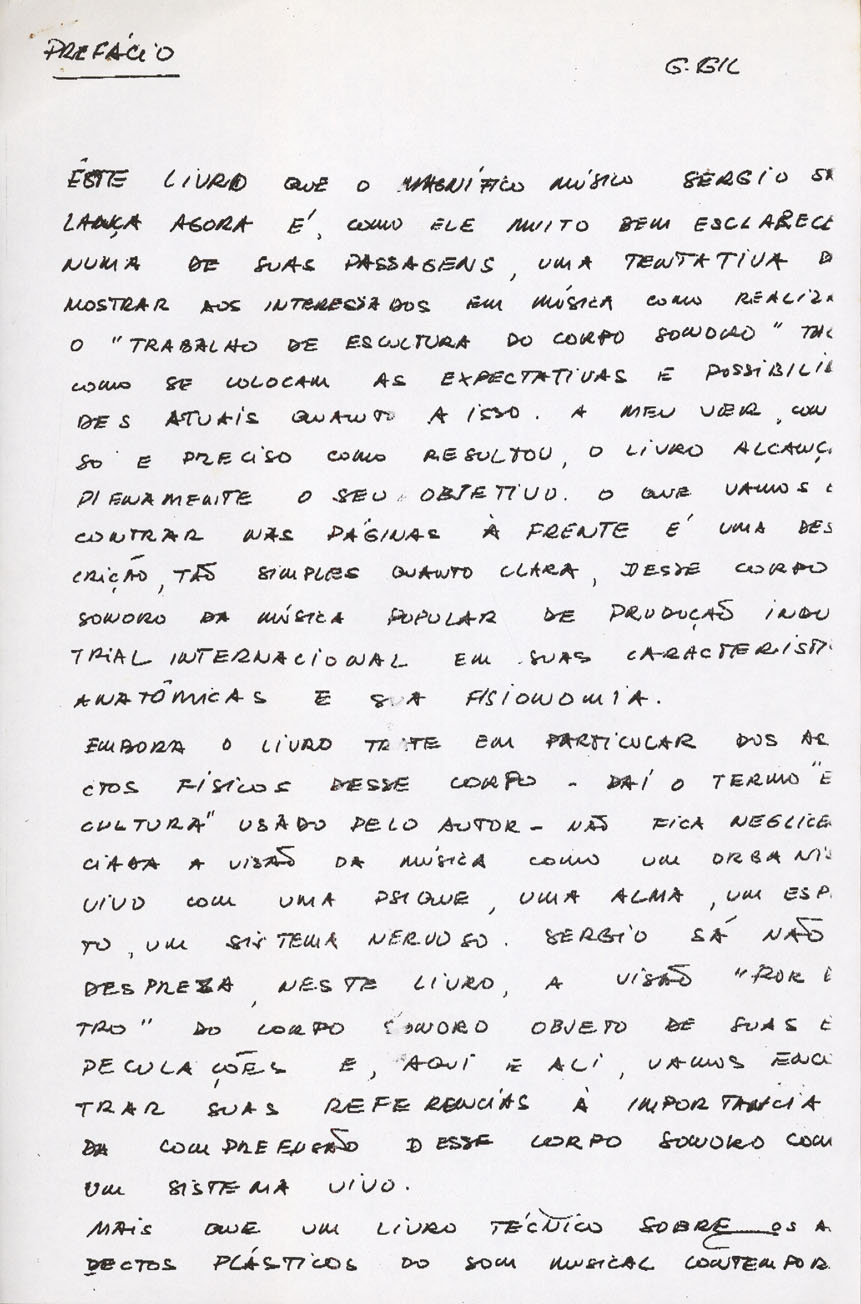 PREFÁCIO
G. GIL
ÊSTE LIVRO QUE O MAGNÍFICO MÚSICO SERGIO SÁ
LANÇA AGORA É, COMO ELE MUITO BEM ESCLARECE
NUMA DE SUAS PASSAGENS, UMA TENTATIVA D
MOSTRAR AOS INTERESSADOS EM MÚSICA COMO REALIZA
O "TRABALHO DE ESCULTURA DO CORPO SONORO"
COMO SE COLOCAM AS EXPECTATIVAS E POSSIBILI
DES ATUAIS QUANTO A ISSO. A MEU VER, CON
SO E PRECISO COMO RESULTOU, O LIVRO ALCANÇ
PLENAMENTE O SEU OBJETIVO. O QUE VAMOS
CONTRAR NAS PÁGINAS À FRENTE É UMA DES
CRIÇÃO, TÃO SIMPLES QUANTO CLARA, DESSE CORPO
SONORO DA MÚSICA POPULAR DE PRODUÇÃO INDU
TRIAL INTERNACIONAL EM SUAS CARACTERISTI
ANATÔMICAS E SUA FISIONOMIA.
EMBORA O LIVRO TRATE EM PARTICULAR DOS
CTOS FÍSICOS DESSE CORPO - DAÍ O TERMO "E
CULTURA" USADO PELO AUTOR - NÃO FICA NEGLIGE
CIADA A VISÃO DA MÚSICA COMO UM ORGANIS
VIVO COM UMA PSIQUE, UMA ALMA, UM ESP
TO, UM SISTEMA NERVOSO. SERGIO SÁ NÃO
DESPREZA, NESTE LIVRO, A VISÃO "POR
TRO" DO CORPO SONORO OBJETO DE SUAS E
PECULAÇÕES E, AQUI E ALI, VAMOS ENCO
TRAR SUAS REFERENCIAS À IMPORTANCIA
DA COMPREENSÃO DESSE CORPO SONORO COM
UM SISTEMA VIVO.
MAIS QUE UM LIVRO TÉCNICO SOBRE OS A
PECTOS PLÁSTICOS DO SOM MUSICAL CONTEMPOR